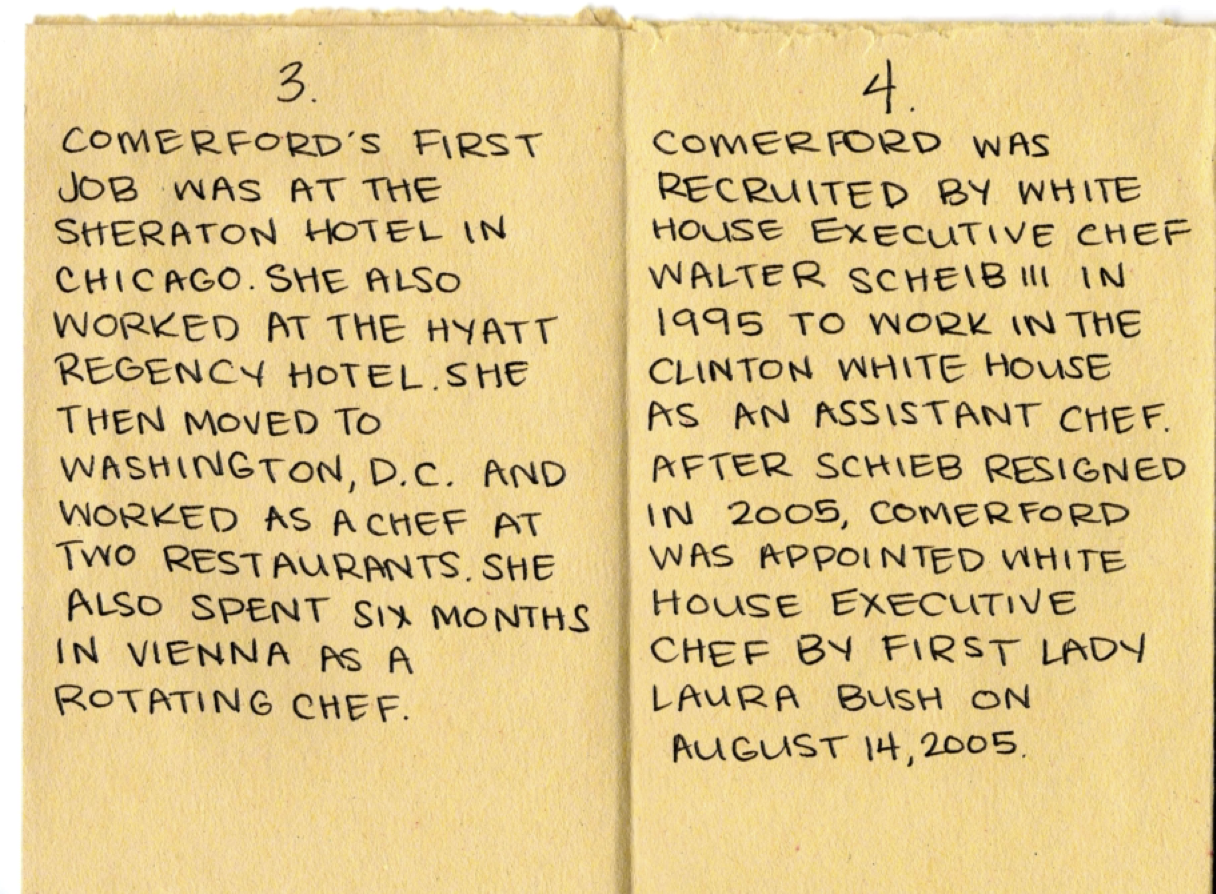 3.
COMERFORD'S FIRST
JOB WAS AT THE
SHERATON HOTEL IN
CHICAGO. SHE ALSO
WORKED AT THE HYATT
REGENCY HOTEL. SHE
THEN MOVED TO
WASHINGTON, D.C. AND
WORKED AS A CHEF AT
TWO RESTAURANTS. SHE
ALSO SPENT SIX MONTHS
IN VIENNA AS A
ROTATING CHEF.
4.
COMERFORD WAS
RECRUITED BY WHITE
HOUSE EXECUTIVE CHEF
WALTER SCHEIB III IN
1995 TO WORK IN THE
CLINTON WHITE HOUSE
AS AN ASSISTANT CHEF.
AFTER SCHIEB RESIGNED
IN 2005, COMERFORD
WAS APPOINTED WHITE
HOUSE EXECUTIVE
CHEF BY FIRST LADY
LAURA BUSH ON
AUGUST 14, 2005.